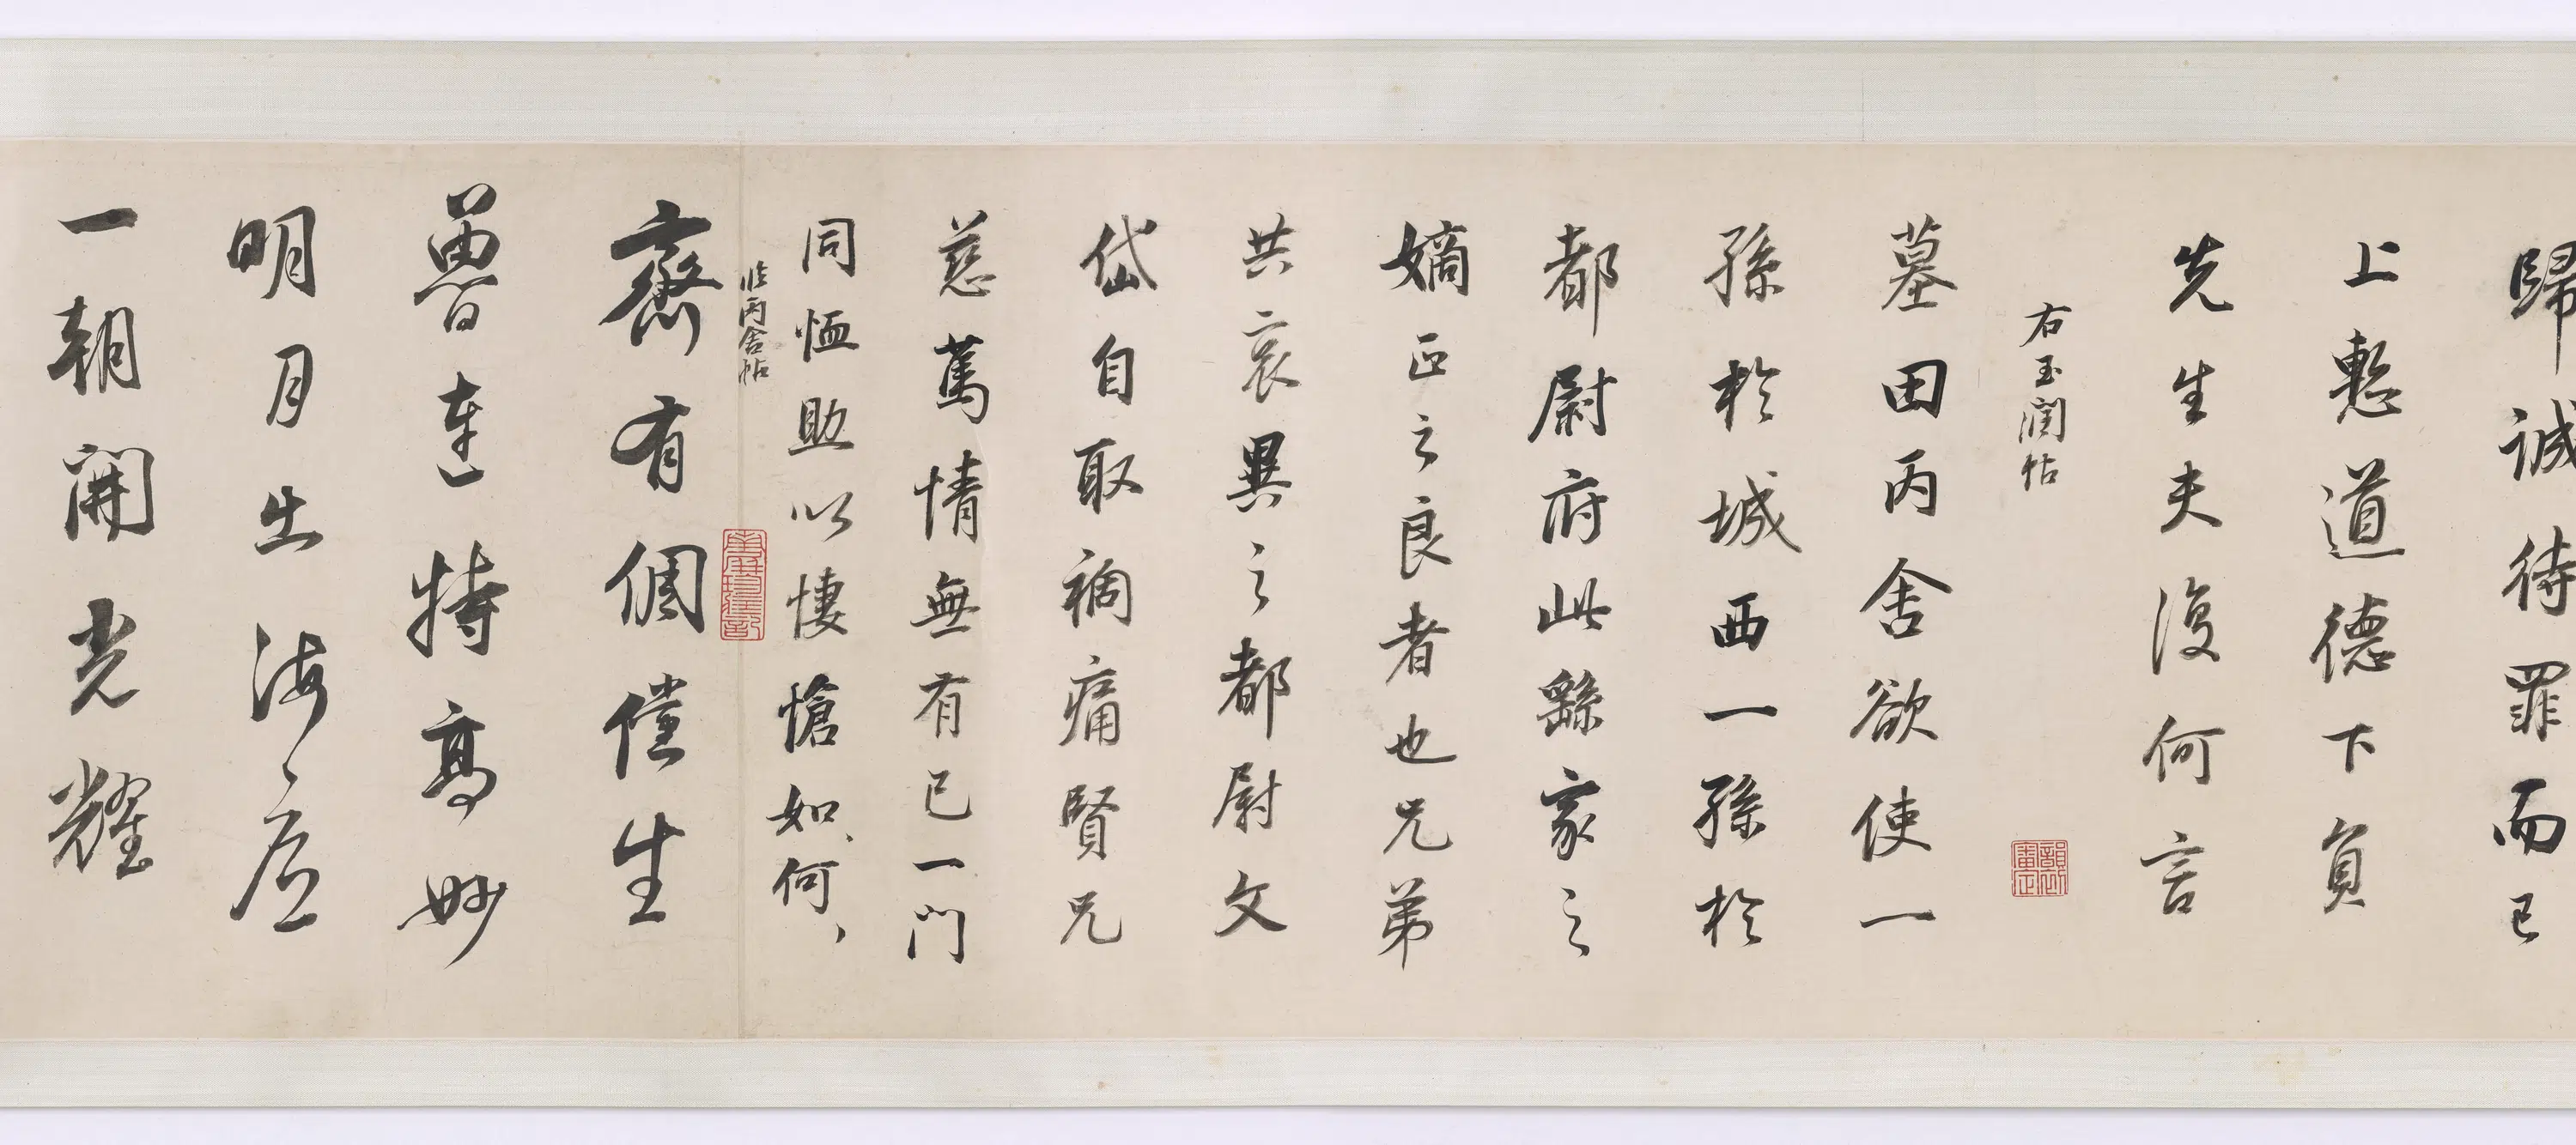 歸誠待罪而已
上慙道德下負
先生夫復何言
右玉潤帖
墓田丙舍欲使一
孫於城西一孫於
都尉府此繇家之
嫡正之良者也兄弟
共哀異之都尉文
岱自取禍痛賢兄
慈篤情無有已一門
同恤助以悽愴如何〻
臨丙舍帖
齊有倜儻生
魯連特高妙
明月出海底
一朝開光耀